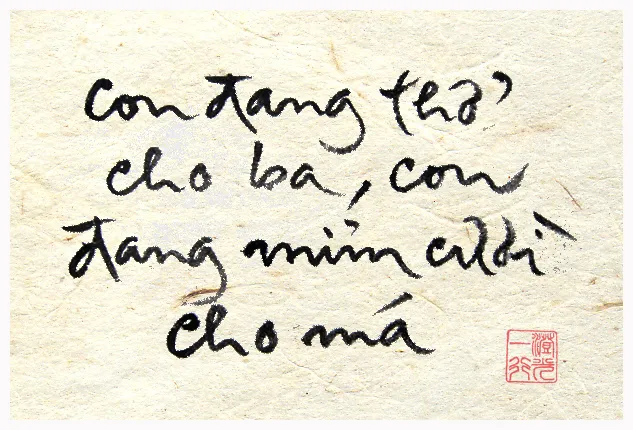 con đang thở
cho ba, con
đang mỉm cười
cho má
澄光
一行